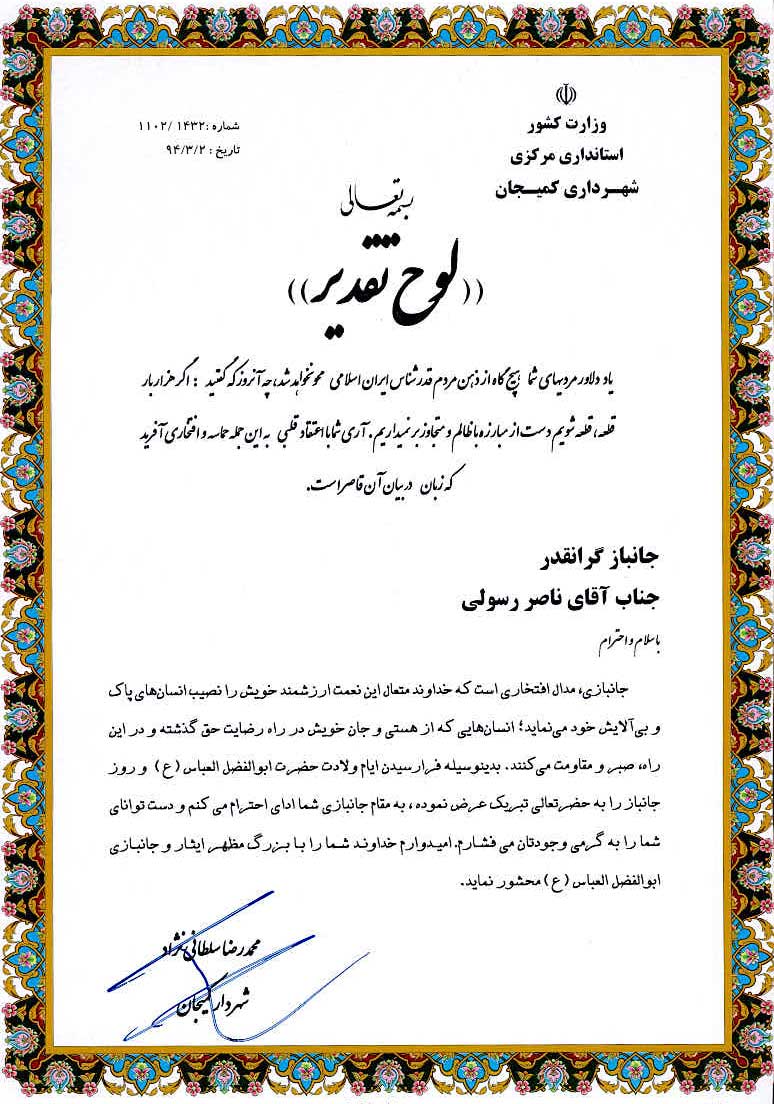 وزارت کشور
استانداری مرکزی
شهرداری کمیجان
شماره :۱۴۳۲ /۱۱۰۲
تاریخ : ۹۴/۳/۲
بسمه تعالی
((لوح تقدیر))
یاد دلاور مردیهای شما هیچ گاه از ذهن مردم قدرشناس ایران اسلامی محو نخواهد شد، چه آنروز که گفتید : اگر هزار بار
قطعه، قطعه شویم دست از مبارزه با ظالم و متجاوز بر نمیداریم. آری شما با اعتقاد قلبی به این جمله حماسه و افتخاری آفرید
که زبان در بیان آن قاصر است.
جانباز گرانقدر
جناب آقای ناصر رسولی
با سلام و احترام
جانبازی، مدال افتخاری است که خداوند متعال این نعمت ارزشمند خویش را نصیب انسان‌های پاک
و بی‌آلایش خود می‌نماید؛ انسان‌هایی که از هستی و جان خویش در راه رضایت حق گذشته و در این
راه، صبر و مقاومت می‌کنند. بدینوسیله فرارسیدن ایام ولادت حضرت ابوالفضل العباس (ع) و روز
جانباز را به حضرتعالی تبریک عرض نموده ، به مقام جانبازی شما ادای احترام می کنم و دست توانای
شما را به گرمی وجودتان می فشارم. امیدوارم خداوند شما را با بزرگ مظهر ایثار و جانبازی
ابوالفضل العباس (ع) محشور نماید.
محمدرضا سلطانی نژاد
شهردار کمیجان